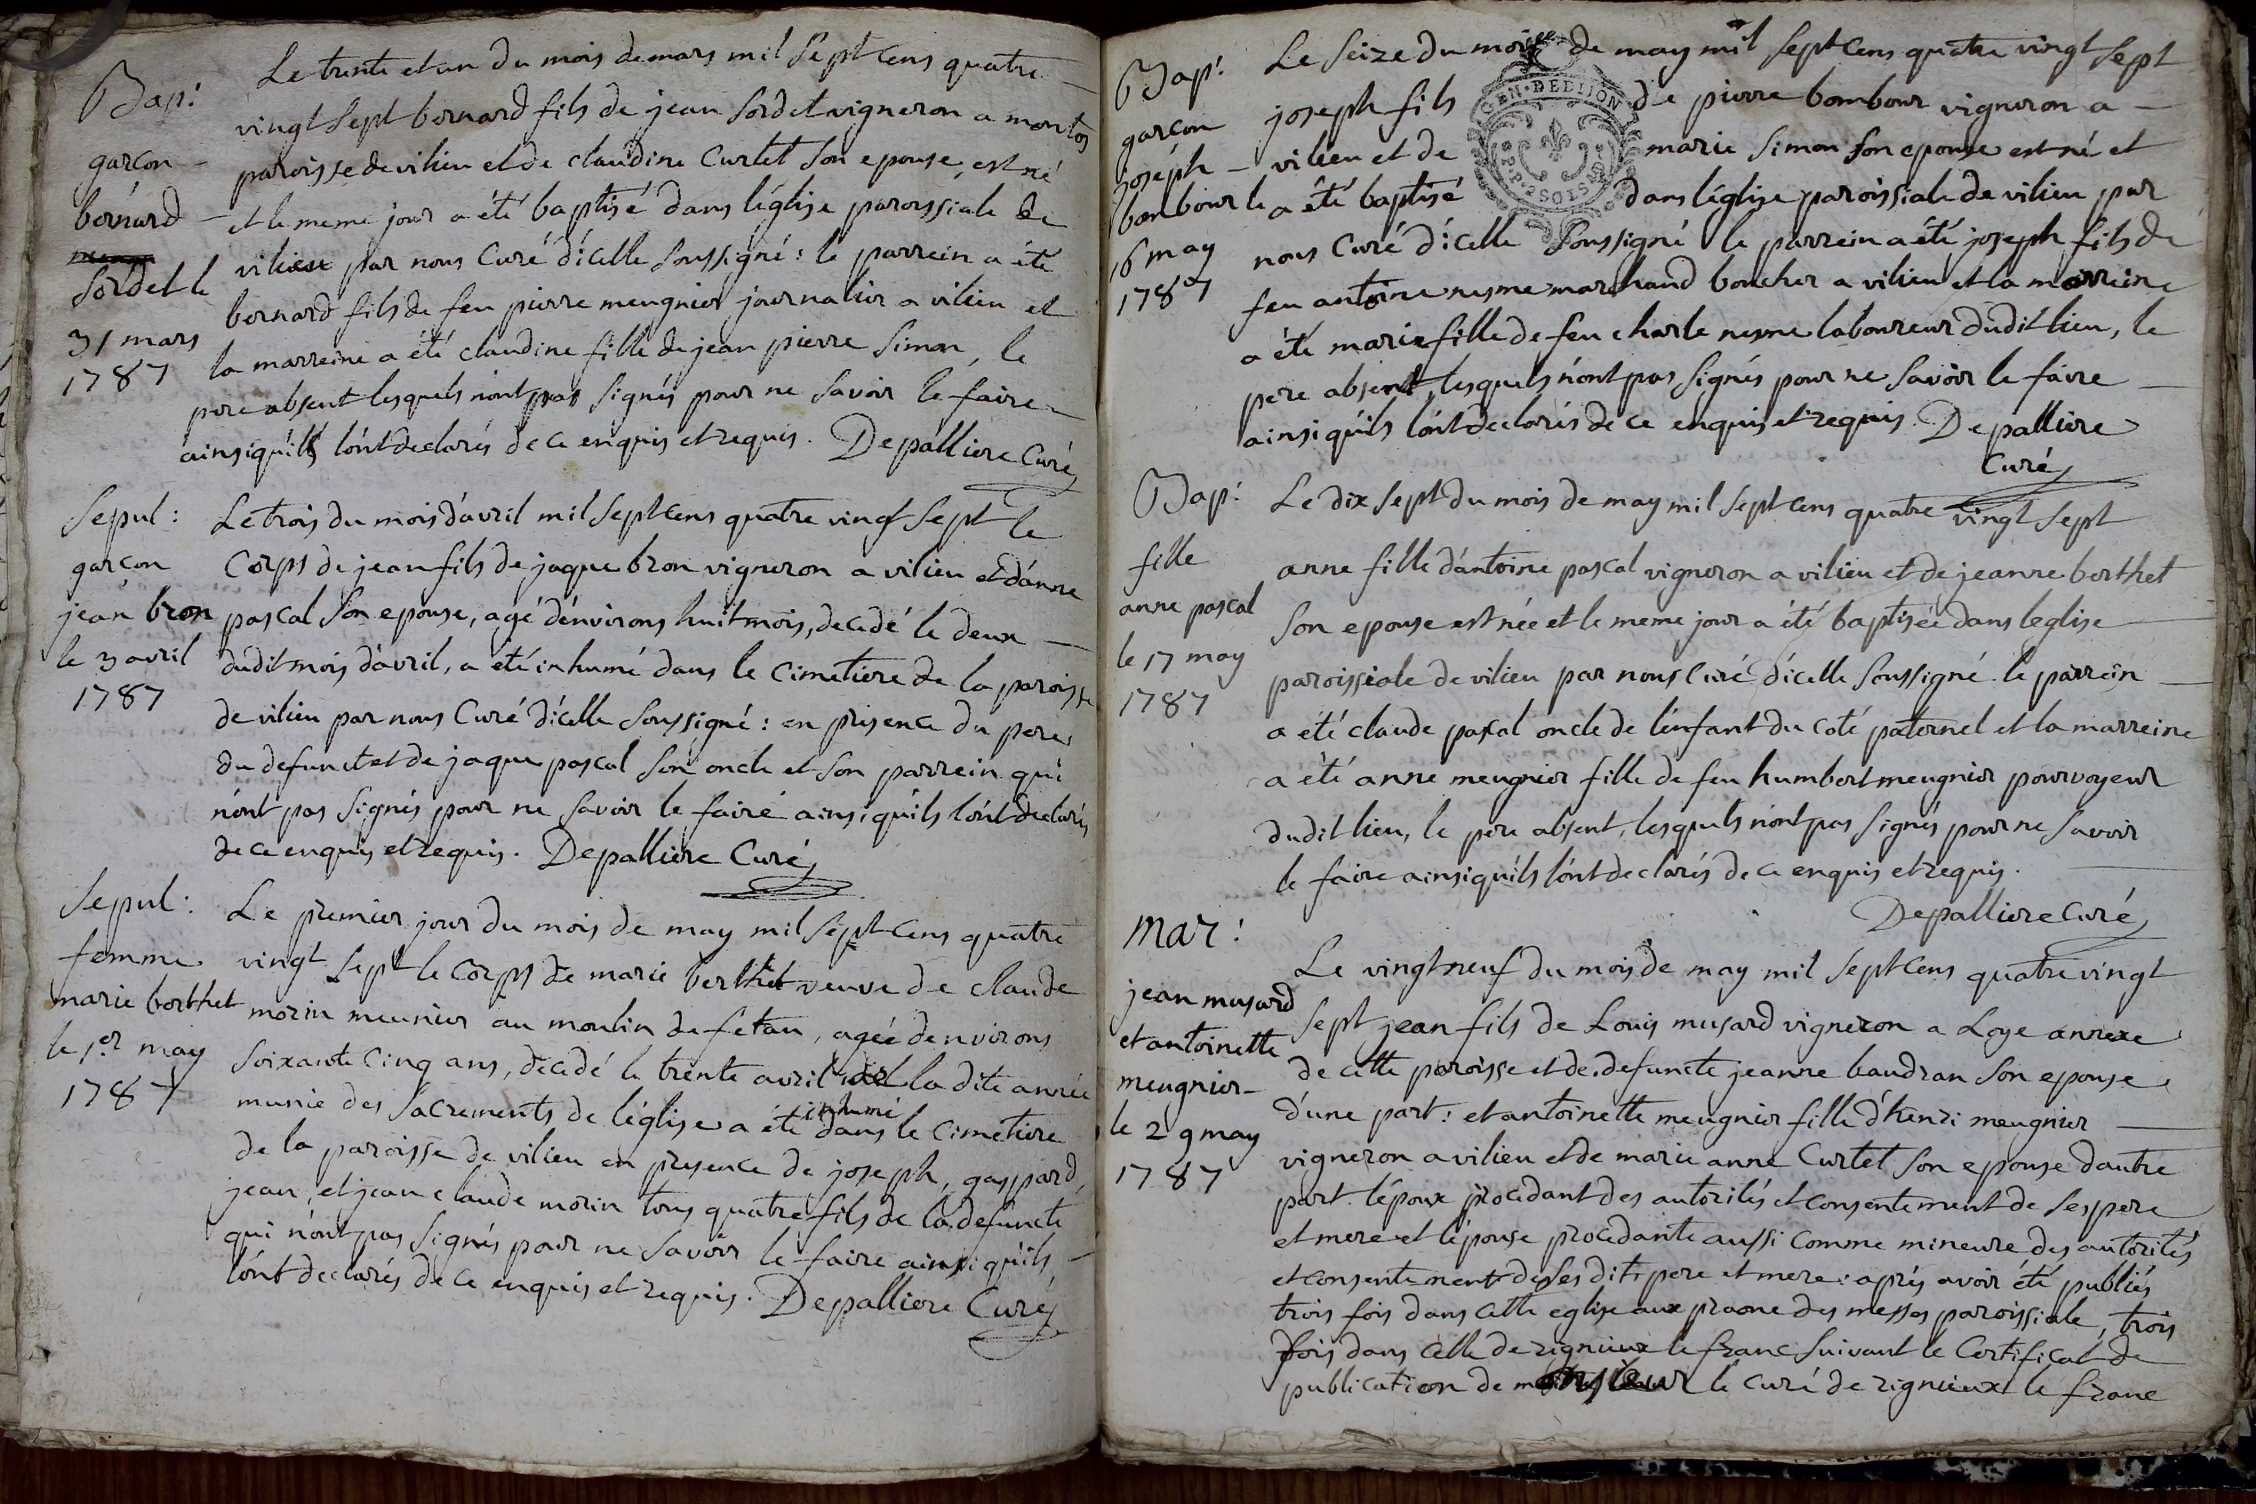 Bap:
garçon
bernard
Sordet le
31 mars
1787
Le trente et un du mois de mars mil sept cens quatre
vingt sept bernard fils de jean Sordet vigneron a montos
paroisse de vilieu et de claudine Curtet son epouse, est né
et le meme jour a été baptisé dans l'église paroissiale de
vilieu par nous Curé d'icelle soussigné : le parrein a été
bernard fils de feu pierre meugnier journalier a vilieu et
la marreine a été claudine fille de jean pierre Simon, le
pere absent lesquels n'ont pas signés pour ne savoir le faire
ainsi qu'ils l'ont declarés de ce enquis et requis. Depalliere Curé
Sepul:
garçon
jean bron
le 3 avril
1787
Le trois du mois d'avril mil sept cens quatre vingt sept le
Corps de jean fils de jaque bron vigneron a vilieu et d'anne
pascal son epouse, agé d'environs huit mois, decedé le deux
dudit mois d'avril, a été inhumé dans le cimetiere de la paroisse
de vilieu par nous Curé d'icelle soussigné : en presence du pere
du defunct et de jaque pascal son oncle et son parrein qui
n'ont pas signés pour ne savoir le faire ainsi qu'ils l'ont declarés
de ce enquis et requis. Depalliere Curé
Sepul:
femme
marie berthet
le 1.er may
1787
Le premier jour du mois de may mil sept cens quatre
vingt sept le corps de marie berthet veuve de claude
morin meunier au moulin de fétan, agée denvirons
soixante cinq ans, decedé le trente avril la dite année
munie des sacrements de l'église a été inhumé dans le cimetiere
de la paroisse de vilieu en presence de joseph, gaspard,
jean, et jean claude morin tous quatre fils de la defuncte
qui n'ont pas signés pour ne savoir le faire ainsi qu'ils
l'ont declarés de ce enquis et requis. Depalliere Curé
Bap:
garçon
joseph
bombour le
16 may
1787
Le seize du mois de may mil sept cens quatre vingt sept
joseph fils de pierre bombour vigneron a
vilieu et de marie Simon son epouse est né et
a été baptisé dans l'église paroissiale de vilieu par
nous Curé d'icelle soussigné le parrein a été joseph fils de
feu antoine nesme marchand boucher a vilieu et la marreine
a été marie fille de feu charle nesme laboureur dudit lieu, le
pere absent, lesquels n'ont pas signés pour ne savoir le faire
ainsi qu'ils l'ont declarés de ce enquis et requis. Depalliere
Curé
Bap:
fille
anne pascal
le 17 may
1787
Le dix sept du mois de may mil sept cens quatre vingt sept
anne fille d'antoine pascal vigneron a vilieu et de jeanne berthet
son epouse est née et le meme jour a été baptisée dans l'eglise
paroissiale de vilieu par nous Curé d'icelle soussigné le parrein
a été claude pascal oncle de l'enfant du coté paternel et la marreine
a été anne meugnier fille de feu humbert meugnier pourvoyeur
dudit lieu, le pere absent, lesquels n'ont pas signés pour ne savoir
le faire ainsi qu'ils l'ont declarés de ce enquis et requis.
Depalliere Curé
Mar:
jean musard
et antoinette
meugnier
le 29 may
1787
Le vingt neuf du mois de may mil sept cens quatre vingt
sept jean fils de Louis musard vigneron a Loye annexe
de cette paroisse et de defuncte jeanne baudran son epouse
d'une part : et antoinette meugnier fille d'henri meugnier
vigneron a vilieu et de marie anne Curtet son epouse dautre
part. l'époux procedant des autorités et consentement de ses pere
et mere et l'épouse procedante aussi comme mineure des autorités
et consentement de ses dits pere et mere : après avoir été publiés
trois fois dans cette eglise aux prone des messes paroissiale, trois
fois dans celle de rignieux le franc suivant le Certificat de
publication de monsieur le curé de rignieux le franc